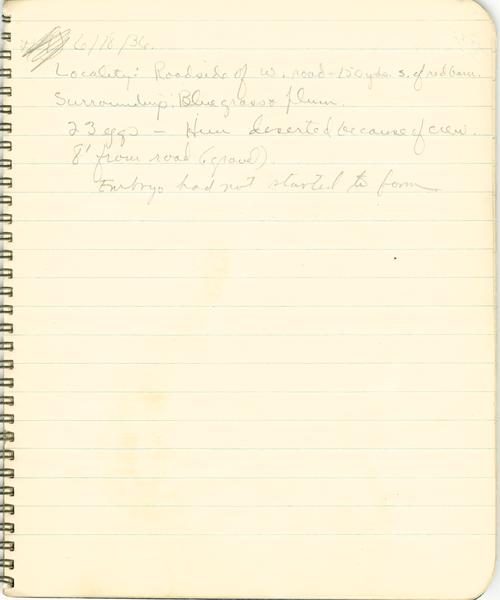 6/18/36.
Locality: Roadside of W. road - 150 yds. S. of red barn.
Surroundings: Bluegrass & plum.
23 eggs - Hun deserted because of crew.
8' from road (gravel).
Embryo had not started to form